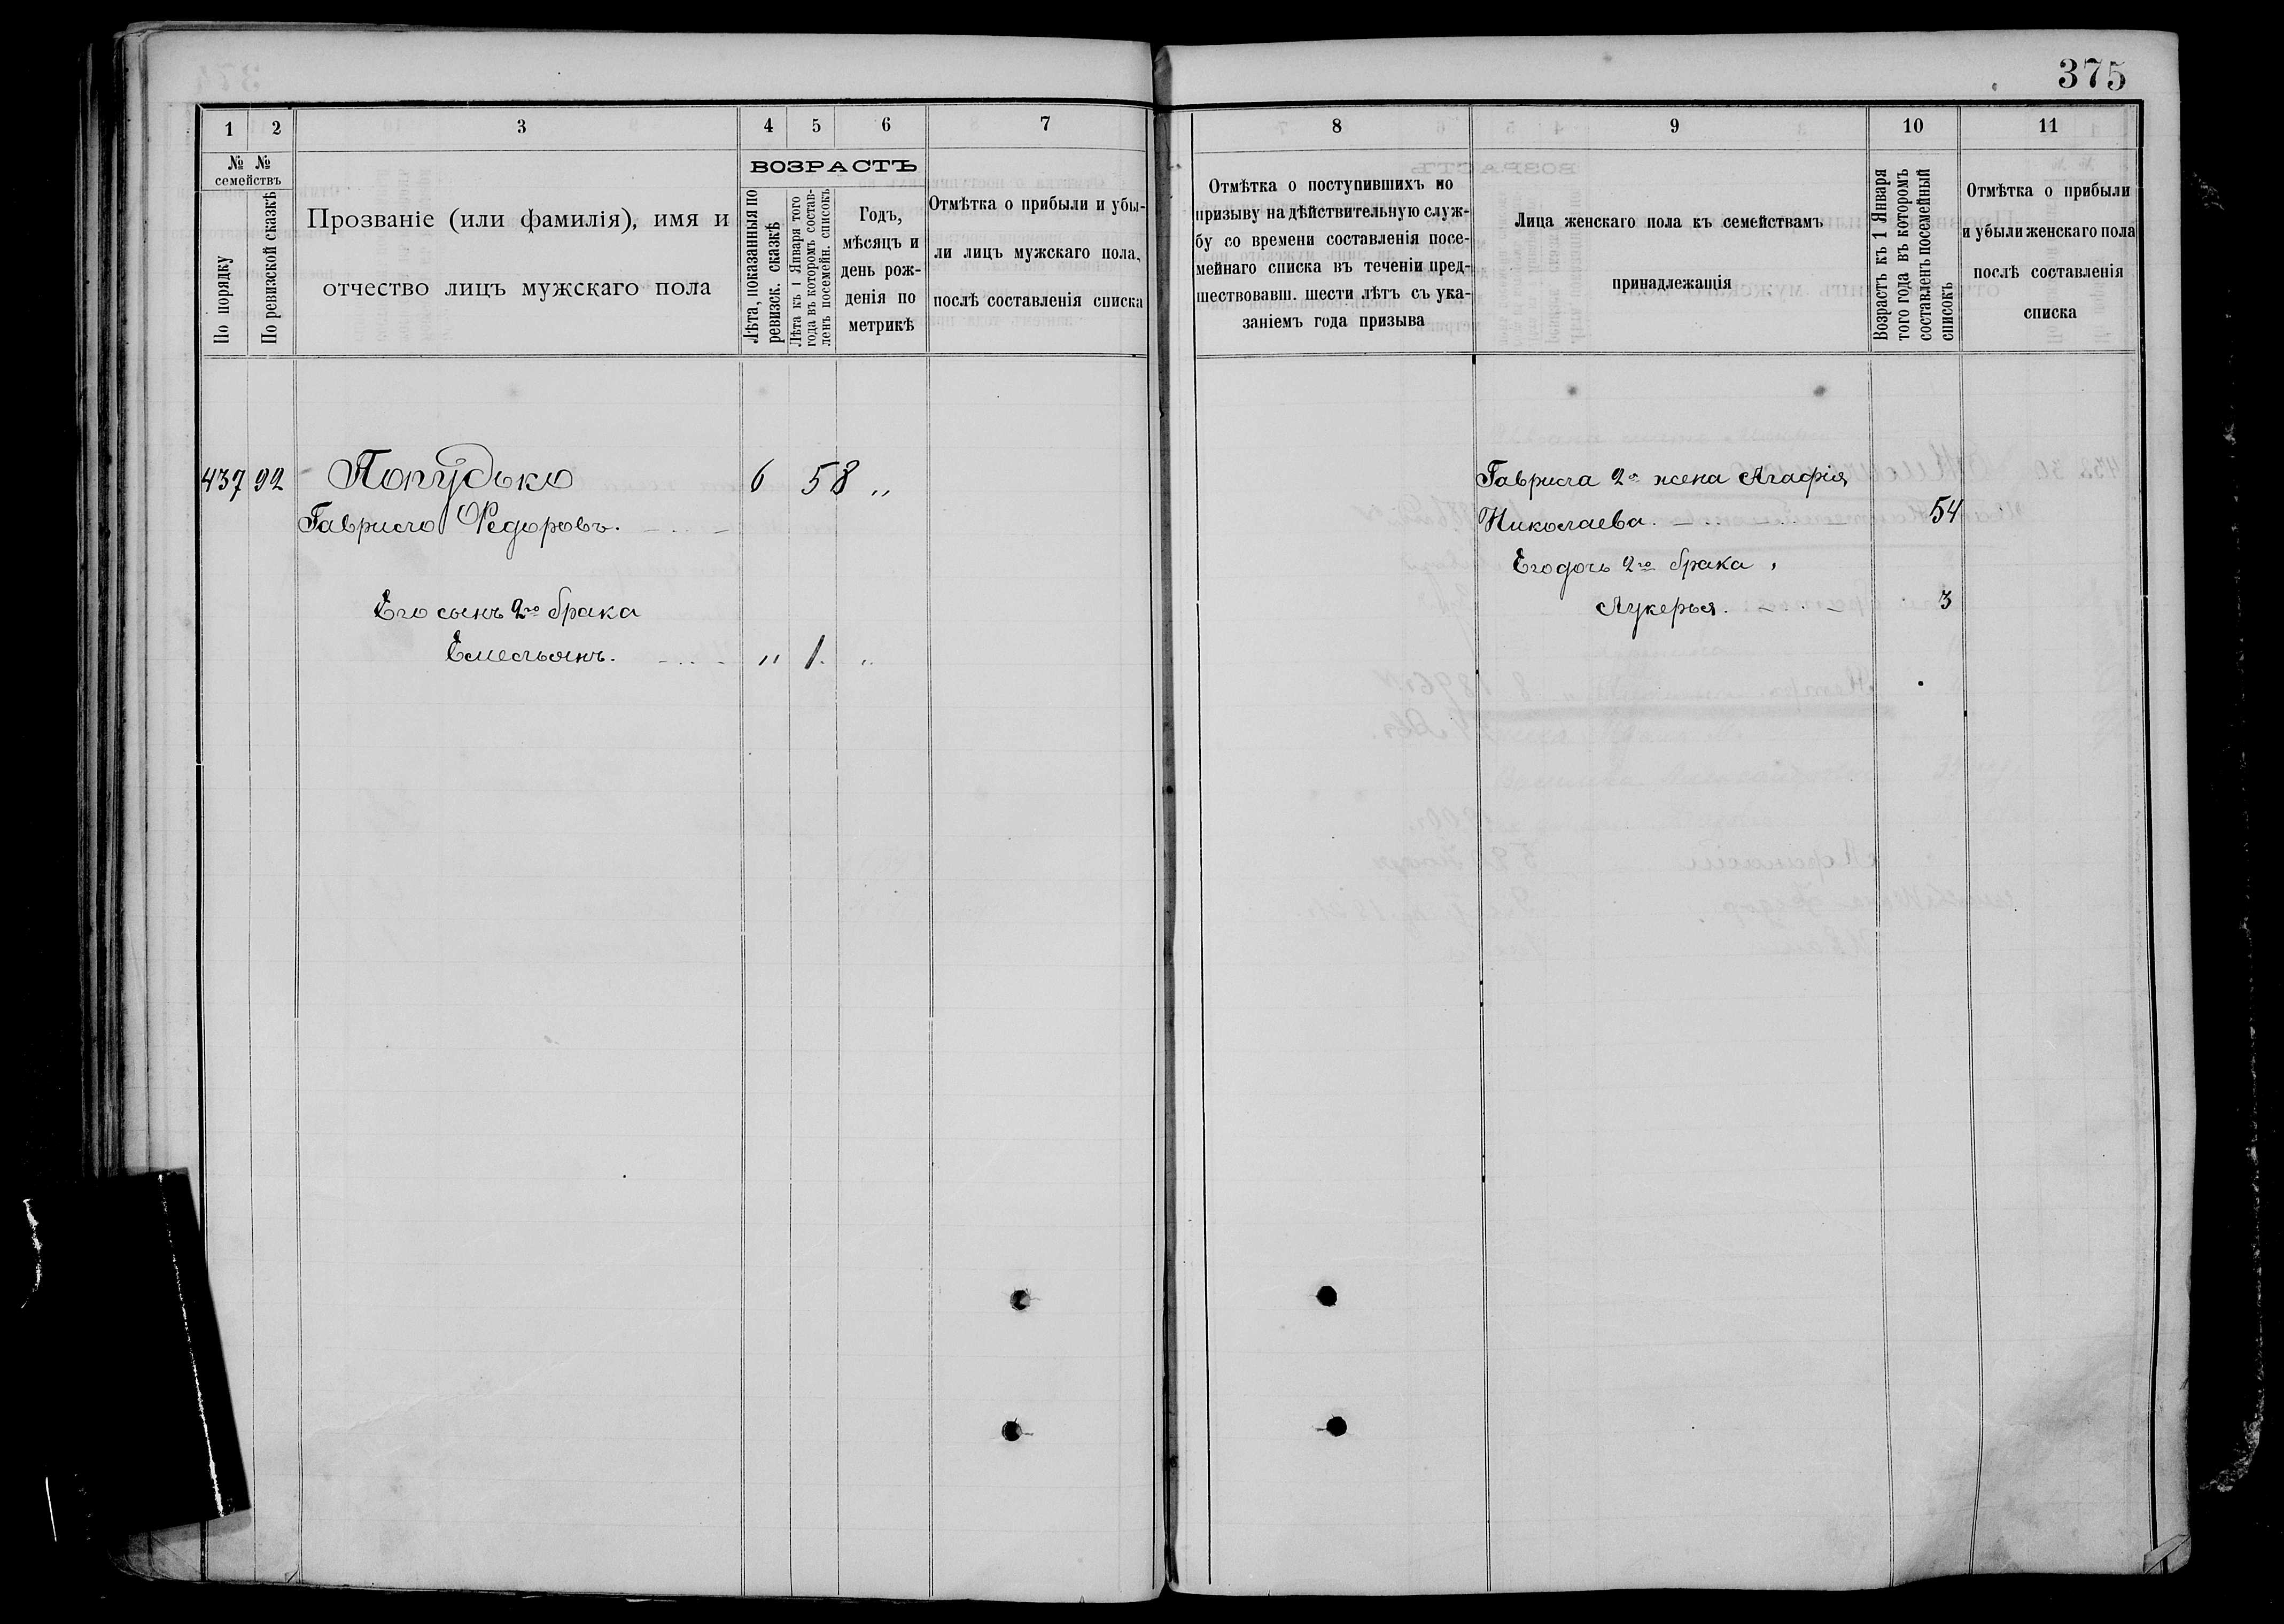 375
1 2 3 4 5 6 7
№ № семействъ
По порядку
По ревизской сказкѣ
Прозваніе (или фамилія), имя и
отчество лицъ мужскаго пола
ВОЗРАСТЪ
Лѣта, показанныя по
ревизск. сказкѣ
Лѣта къ 1 Января того
года въ которомъ состав-
ленъ посемейн. списокъ
Годъ,
мѣсяцъ и
день рож-
денія по
метрикѣ
Отмѣтка о прибыли и убы-
ли лицъ мужскаго пола,
послѣ составленія списка
8 9 10 11
Отмѣтка о поступившихъ по
призыву на дѣйствительную служ-
бу со времени составленія посе-
мейнаго списка въ теченіи пред-
шествовавш. шести лѣтъ съ ука-
заніемъ года призыва
Лица женскаго пола къ семействамъ
принадлежащія
Возрастъ къ 1 Января
того года въ которомъ
составленъ посемейный
списокъ
Отмѣтка о прибыли
и убыли женскаго пола
послѣ составленія
списка
437 92 Попудько 6 58 "
Гаврило Федоровъ.
Его сынъ 2го брака
Емельянъ. " 1. "
Гаврила 2я жена Агафія
Николаева. 54
Его дочь 2го брака
Лукерья. 3